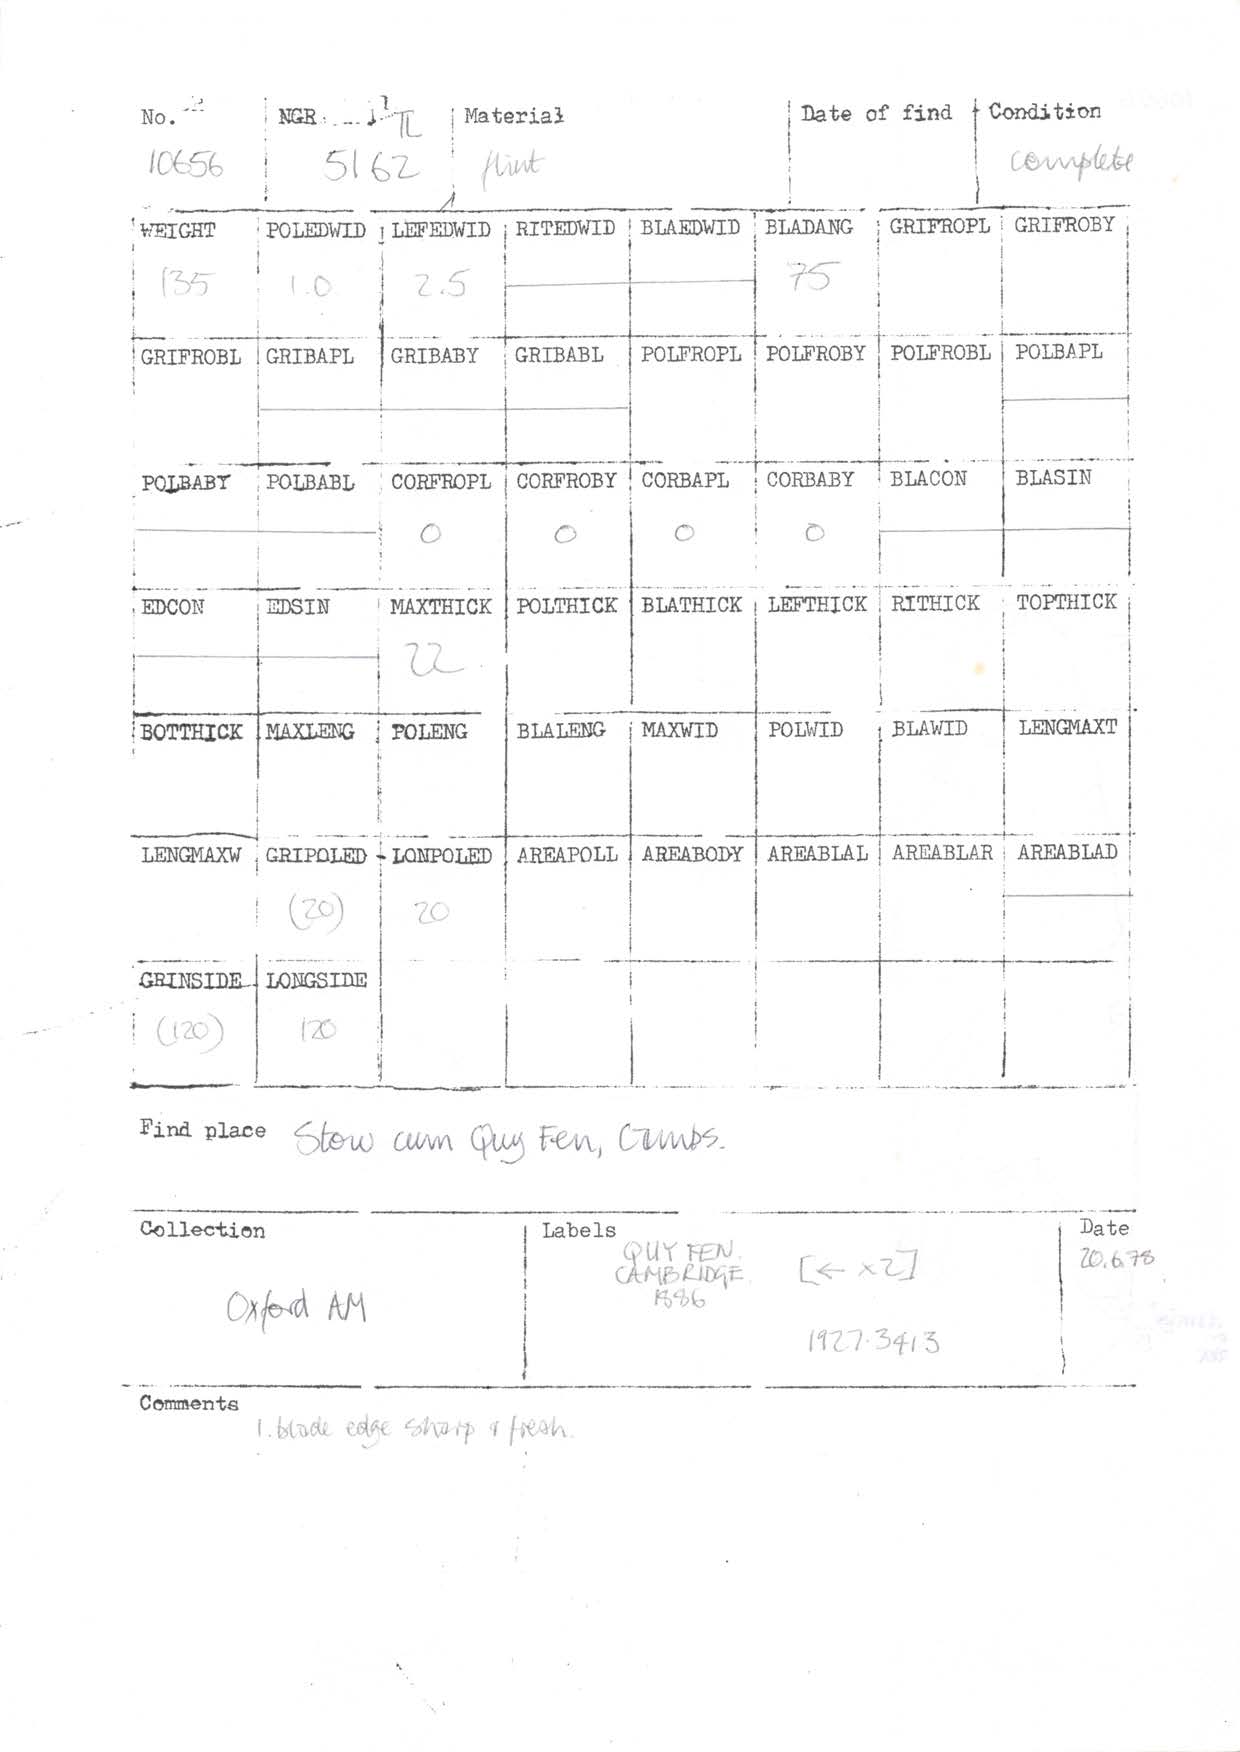 No. NGR: TL Material Date of find Condition
10656 5162 flint complete
WEIGHT POLEDWID LEFEDWID RITEDWID BLAEDWID BLADANG GRIFROPL GRIFROBY
135 1.0 2.5 75
GRIFROBL GRIBAPL GRIBABY GRIBABL POLFROPL POLFROBY POLFROBL POLBAPL
POLBABY POLBABL CORFROPL CORFROBY CORBAPL CORBABY BLACON BLASIN
0 0 0 0
EDCON EDSIN MAXTHICK POLTHICK BLATHICK LEFTHICK RITHICK TOPTHICK
22
BOTTHICK MAXLENG POLENG BLALENG MAXWID POLWID BLAWID LENGMAXT
LENGMAXW GRIPOLED LONPOLED AREAPOLL AREABODY AREABLAL AREABLAR AREABLAD
(20) 20
GRINSIDE LONGSIDE
(120) 120
Find place Stow cum Quy Fen, Cambs.
Collection Labels Date
QUY FEN. [← x2] 20.6.78
CAMBRIDGE.
1886
Oxford AM
1927.3413
Comments
1. blade edge sharp & fresh.